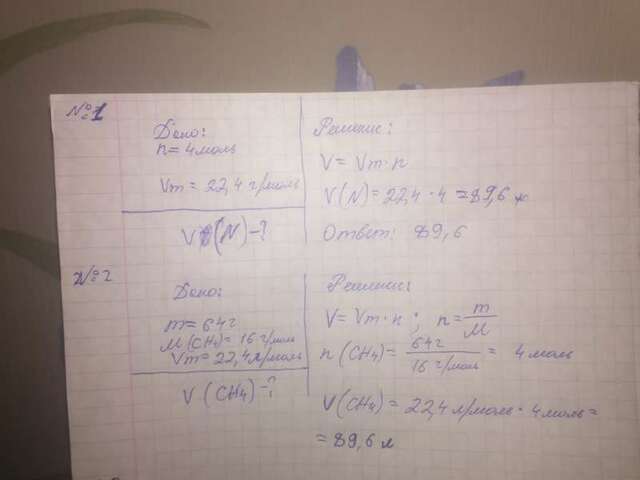 №1
Дано:
n = 4 моль
Vm = 22,4 г/моль
V(N) - ?
Решение:
V = Vm · n
V(N) = 22,4 · 4 = 89,6 л
Ответ: 89,6
№2
Дано:
m = 64 г
M(CH4) = 16 г/моль
Vm = 22,4 л/моль
V(CH4) - ?
Решение:
V = Vm · n ; n = m/M
n(CH4) = 64 г / 16 г/моль = 4 моль
V(CH4) = 22,4 л/моль · 4 моль =
= 89,6 л